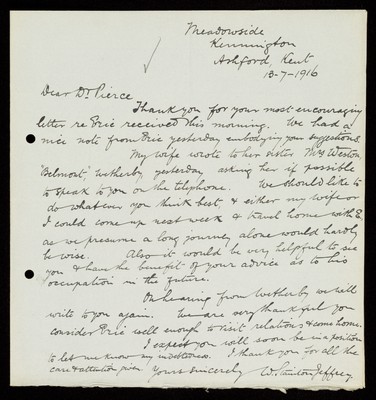 Meadowside
Kennington
Ashford, Kent
13-7-1916
Dear Dr Pierce
Thank you for your most encouraging
letter re Eric received this morning. We had a
nice note from Eric yesterday embodying your suggestions.
My wife wrote to her sister Mrs Weston,
Belmont, Wetherby yesterday asking her if possible
to speak to you on the telephone. We should like to
do whatever you think best, & either my wife or
I could come up next week & travel home with E.
as we presume a long journey alone would hardly
be wise. Also it would be very helpful to see
you & have the benefit of your advice as to his
occupation in the future.
On hearing from Wetherby we will
write to you again. We are very thankful you
consider Eric well enough to visit relations & come home.
I expect you will soon be in a position
to let me know my indebtedness. I thank you for all the
care & attention given. Yours sincerely W. Jeffrey